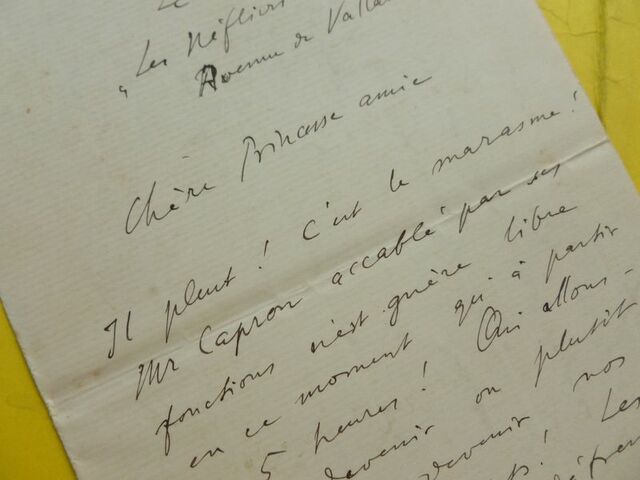 Le
"Les Néfliers
Avenue de Valla
Chère Princesse amie
Il pleut ! C'est le marasme !
Mr Capron accablé par ses
fonctions n'est guère libre
en ce moment qu'à partir
5 heures ! Qui allons-
devenir ou plutôt
devenir nos
! Les